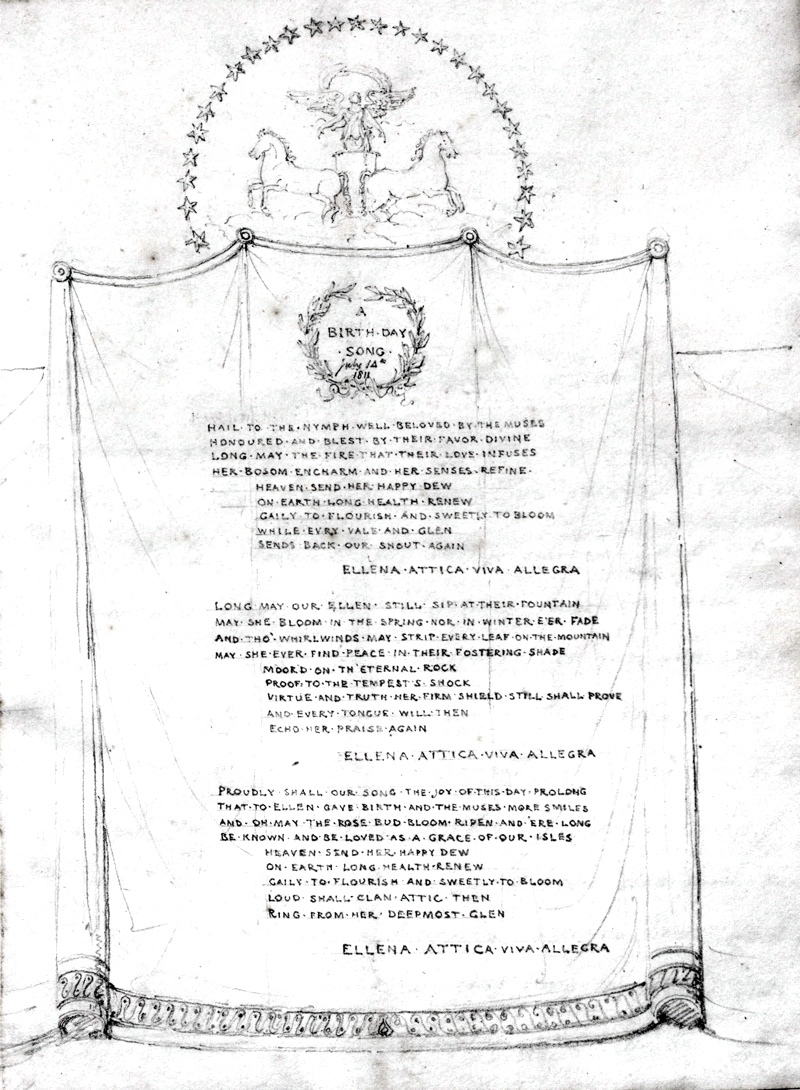 A
BIRTH·DAY
·SONG·
July 14th
1811
HAIL·TO·THE·NYMPH·WELL·BELOVED·BY·THE·MUSES
HONOURED·AND·BLEST·BY·THEIR·FAVOR·DIVINE
LONG·MAY·THE·FIRE·THAT·THEIR·LOVE·INFUSES
HER·BOSOM·ENCHARM·AND·HER·SENSES·REFINE·
HEAVEN·SEND·HER·HAPPY·DEW
ON·EARTH·LONG·HEALTH·RENEW
GAILY·TO·FLOURISH·AND·SWEETLY·TO·BLOOM
WHILE·EVRY·VALE·AND·GLEN
SENDS·BACK·OUR·SHOUT·AGAIN
ELLENA·ATTICA·VIVA·ALLEGRA
LONG·MAY·OUR·ELLEN·STILL·SIP·AT·THEIR·FOUNTAIN
MAY·SHE·BLOOM·IN·THE·SPRING·NOR·IN·WINTER·E'ER·FADE
AND·THO'·WHIRLWINDS·MAY·STRIP·EVERY·LEAF·ON·THE·MOUNTAIN
MAY·SHE·EVER·FIND·PEACE·IN·THEIR·FOSTERING·SHADE
MOOR'D·ON·TH'ETERNAL·ROCK
PROOF·TO·THE·TEMPEST'S·SHOCK
VIRTUE·AND·TRUTH·HER·FIRM·SHIELD·STILL·SHALL·PROVE
AND·EVERY·TONGUE·WILL·THEN
ECHO·HER·PRAISE·AGAIN
ELLENA·ATTICA·VIVA·ALLEGRA
PROUDLY·SHALL·OUR·SONG·THE·JOY·OF·THIS·DAY·PROLONG
THAT·TO·ELLEN·GAVE·BIRTH·AND·THE·MUSES·MORE·SMILES
AND·OH·MAY·THE·ROSE·BUD·BLOOM·RIPEN·AND·'ERE·LONG
BE·KNOWN·AND·BE·LOVED·AS·A·GRACE·OF·OUR·ISLES
HEAVEN·SEND·HER·HAPPY·DEW
ON·EARTH·LONG·HEALTH·RENEW
GAILY·TO·FLOURISH·AND·SWEETLY·TO·BLOOM
LOUD·SHALL·CLAN·ATTIC·THEN
RING·FROM·HER·DEEPMOST·GLEN
ELLENA·ATTICA·VIVA·ALLEGRA